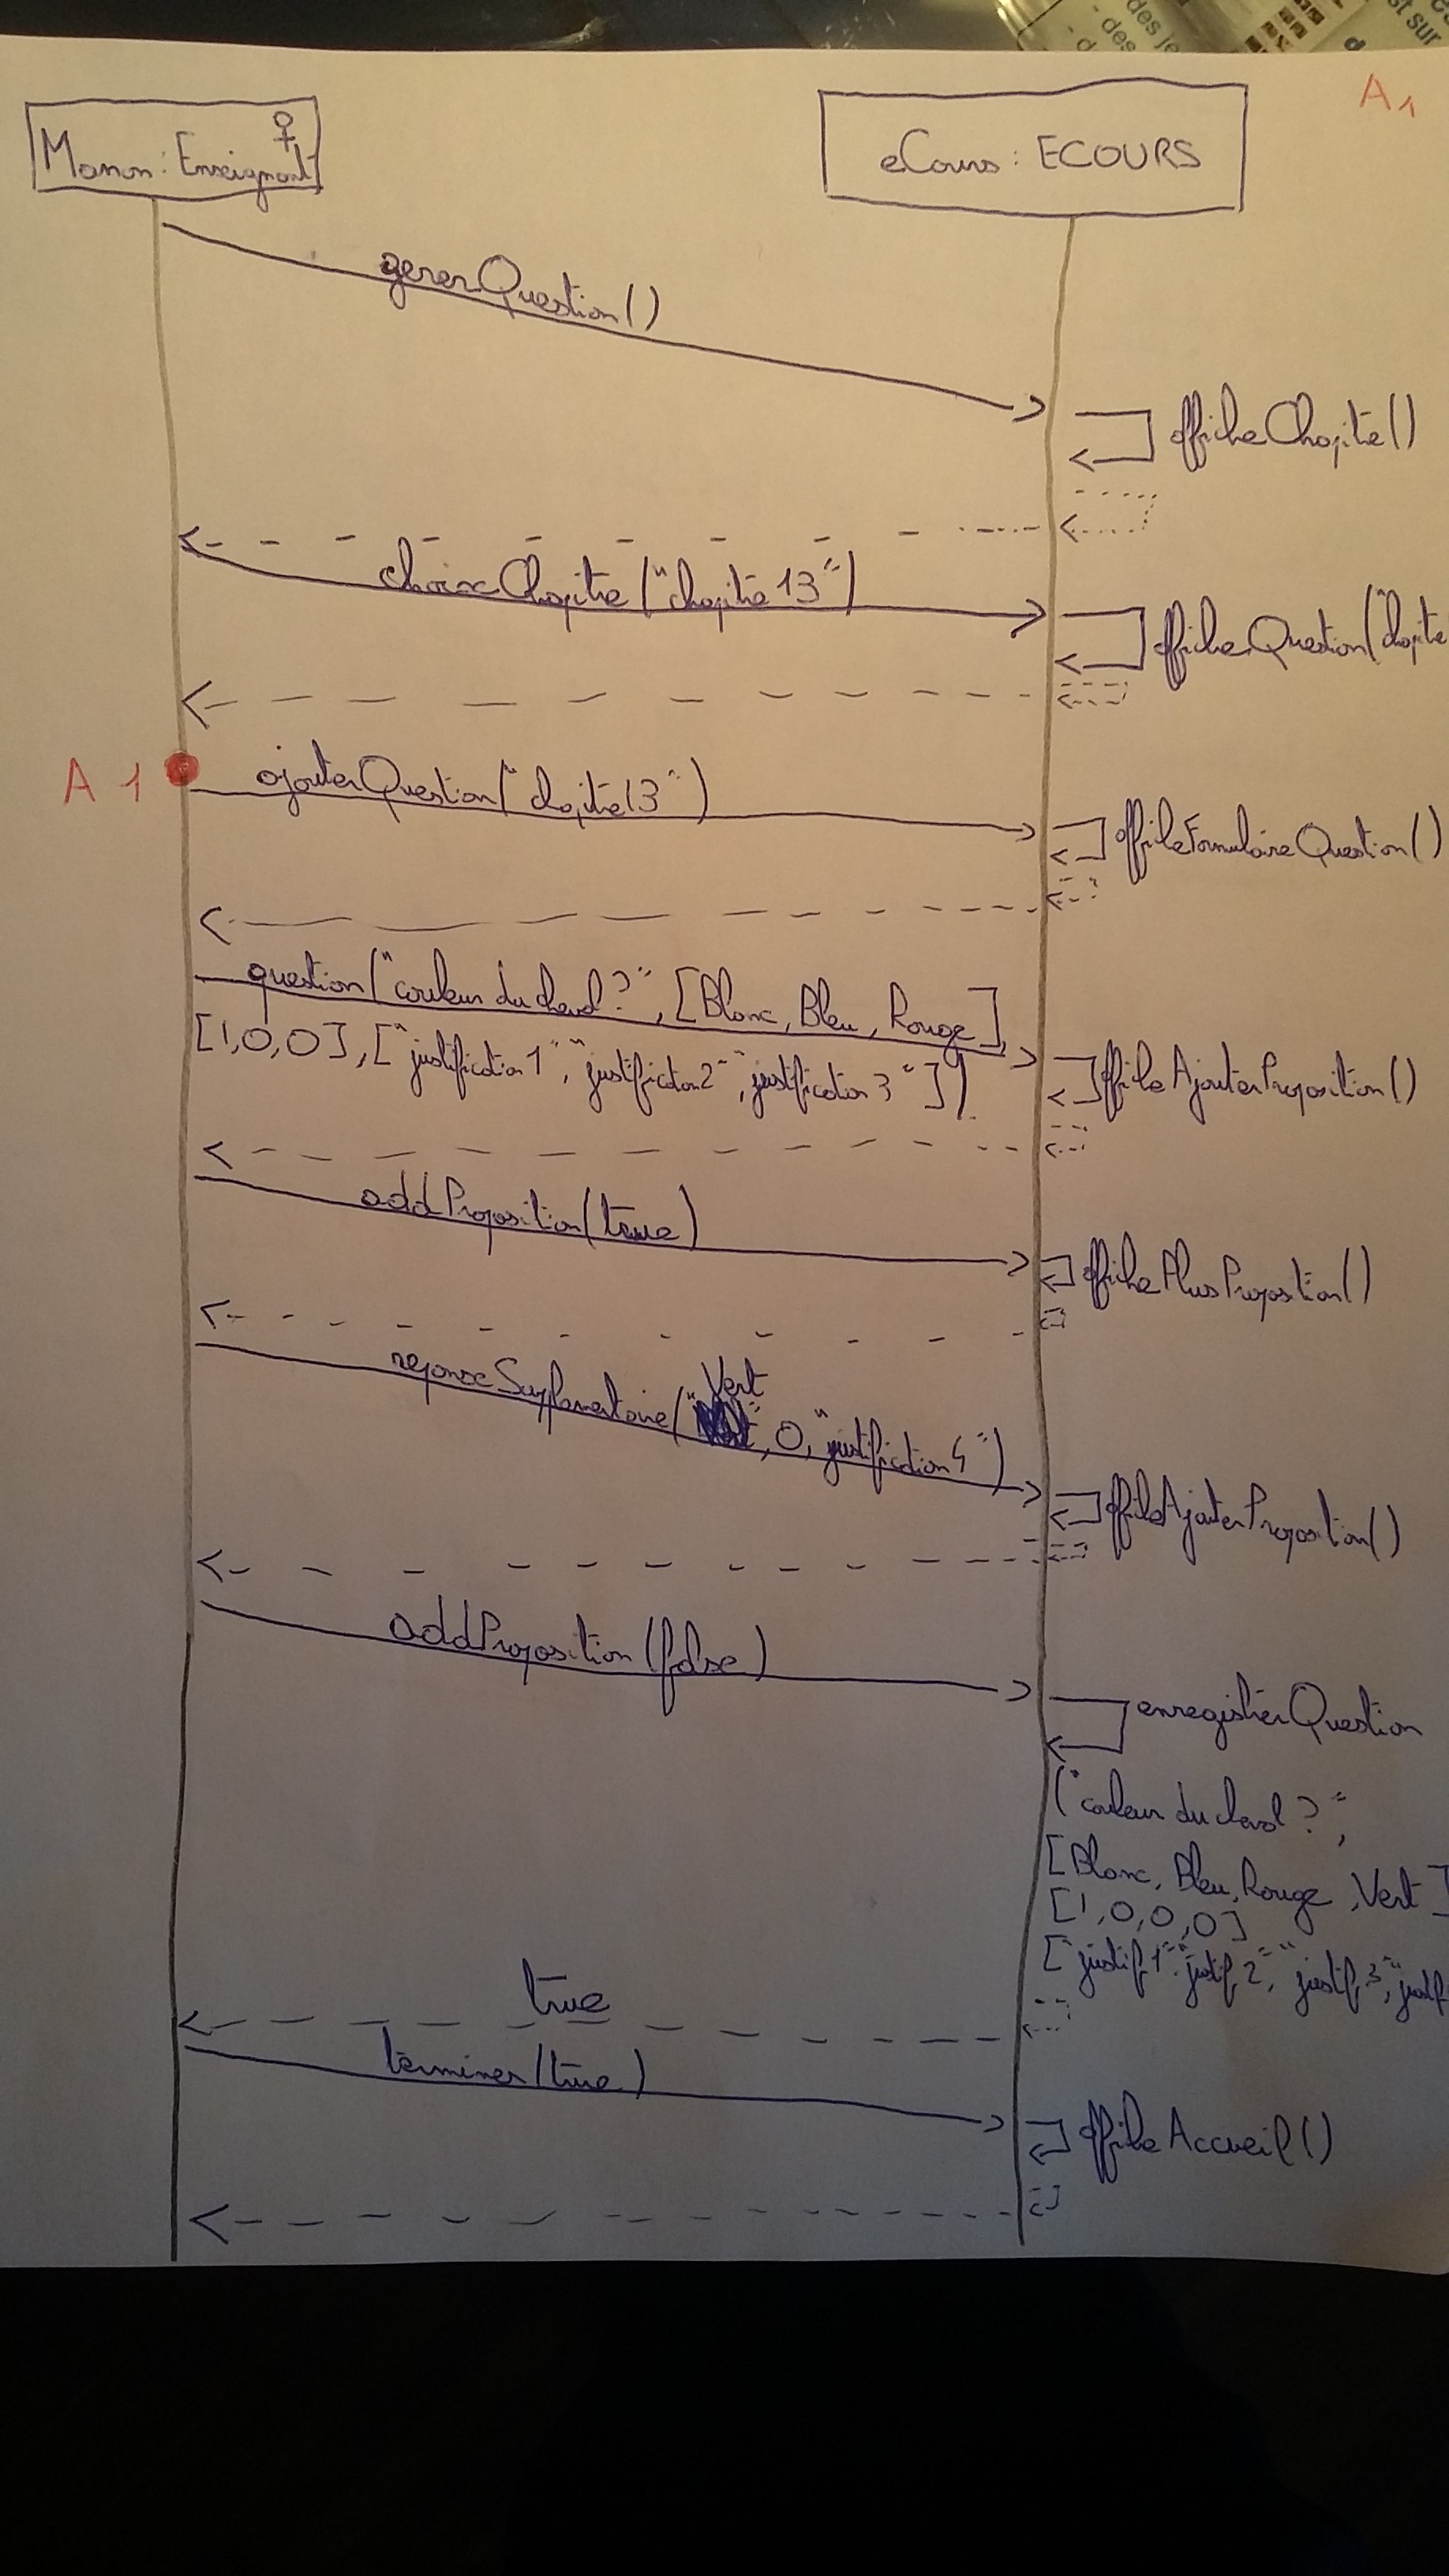 des je
- des
- d
st sur
d
A1
Manon : Enseignant
eCours : ECOURS
gererQuestion()
afficheChapitre()
choixChapitre("chapitre 13")
afficheQuestion("chapitre
A 1
ajouterQuestion("chapitre13")
afficheFormulaireQuestion()
question("couleur du cheval ?", [Blanc, Bleu, Rouge],
[1,0,0], ["justification 1", "justification 2", "justification 3"])
afficheAjouterProposition()
addProposition(true)
affichePlusPropostion()
Vert
reponseSupplementaire(" ", 0, "justification 4")
afficheAjouterProposition()
addProposition(false)
enregistrerQuestion
("couleur du cheval ?",
[Blanc, Bleu, Rouge, Vert]
[1,0,0,0]
["justif 1", "justif 2", "justif 3", "justif
true
terminer(true)
afficheAccueil()